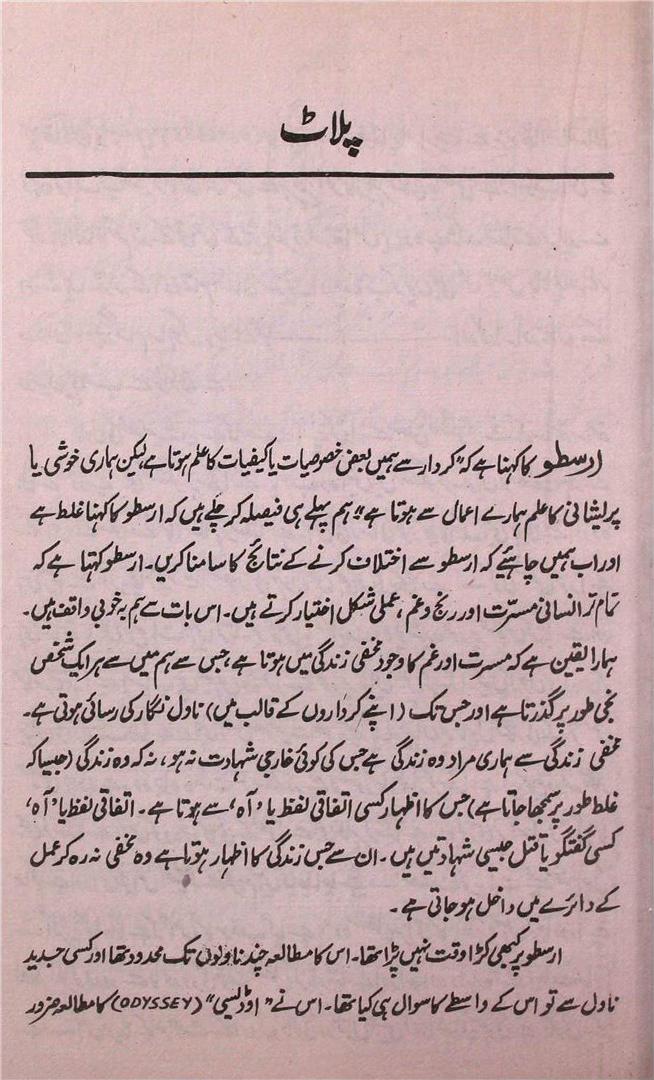 پلاٹ
ارسطو کا کہنا ہے کہ "کردار سے ہمیں بعض خصوصیات یا کیفیات کا علم ہوتا ہے لیکن ہماری خوشی یا
پریشانی کا علم ہمارے اعمال سے ہوتا ہے" ہم پہلے ہی فیصلہ کر چکے ہیں کہ ارسطو کا کہنا غلط ہے
اور اب ہمیں چاہیئے کہ ارسطو سے اختلاف کرنے کے نتائج کا سامنا کریں۔ ارسطو کہتا ہے کہ
تمام تر انسانی مسرّت اور رنج و غم ، عملی شکل اختیار کرتے ہیں۔ اس بات سے ہم بہ خوبی واقف ہیں۔
ہمارا یقین ہے کہ مسرت اور غم کا وجود مخفی زندگی میں ہوتا ہے ، جس سے ہم میں سے ہر ایک شخص
نجی طور پر گذرتا ہے اور جس تک (اپنے کرداروں کے قالب میں) ناول نگار کی رسائی ہوتی ہے۔
مخفی زندگی سے ہماری مراد وہ زندگی ہے جس کی کوئی خارجی شہادت نہ ہو ، نہ کہ وہ زندگی (جیسا کہ
غلط طور پر سمجھا جاتا ہے) جس کا اظہار کسی اتفاقی لفظ یا 'آہ' سے ہوتا ہے۔ اتفاقی لفظ یا 'آہ'
کسی گفتگو یا قتل جیسی شہادتیں ہیں۔ ان سے جس زندگی کا اظہار ہوتا ہے وہ مخفی نہ رہ کر عمل
کے دائرے میں داخل ہو جاتی ہے۔
ارسطو پر کبھی کڑا وقت نہیں پڑا تھا۔ اس کا مطالعہ چند ناولوں تک محدود تھا اور کسی جدید
ناول سے تو اس کے واسطے کا سوال ہی کیا تھا۔ اس نے "اوڈیسی" (ODYSSEY) کا مطالعہ ضرور